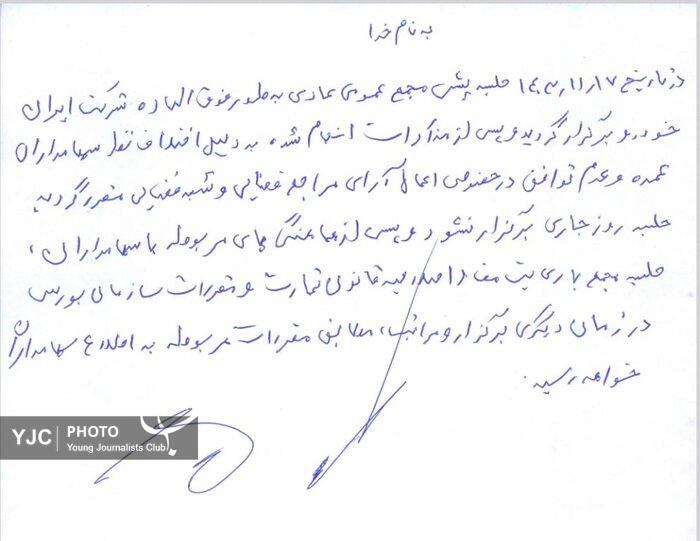 به نام خدا
در تاریخ ۱۴۰۳/۱۱/۱۷ جلسه پیش مجمع عمومی عادی به طور فوق العاده شرکت ایران
خودرو برگزار گردید و پس از مذاکرات انجام شده، به دلیل اختلاف نظر سهامداران
عمده و عدم توافق در خصوص اعمال آرای مراجع قضایی و شبه قضایی مقرر گردید
جلسه روز جاری برگزار نشود و پس از هماهنگی های مربوطه با سهامداران،
جلسه مجمع با رعایت مفاد اصلاحیه قانون تجارت و مقررات سازمان بورس
در زمان دیگری برگزار و مراتب، مطابق مقررات مربوطه به اطلاع سهامداران
خواهد رسید.
YJC PHOTO
Young Journalists Club